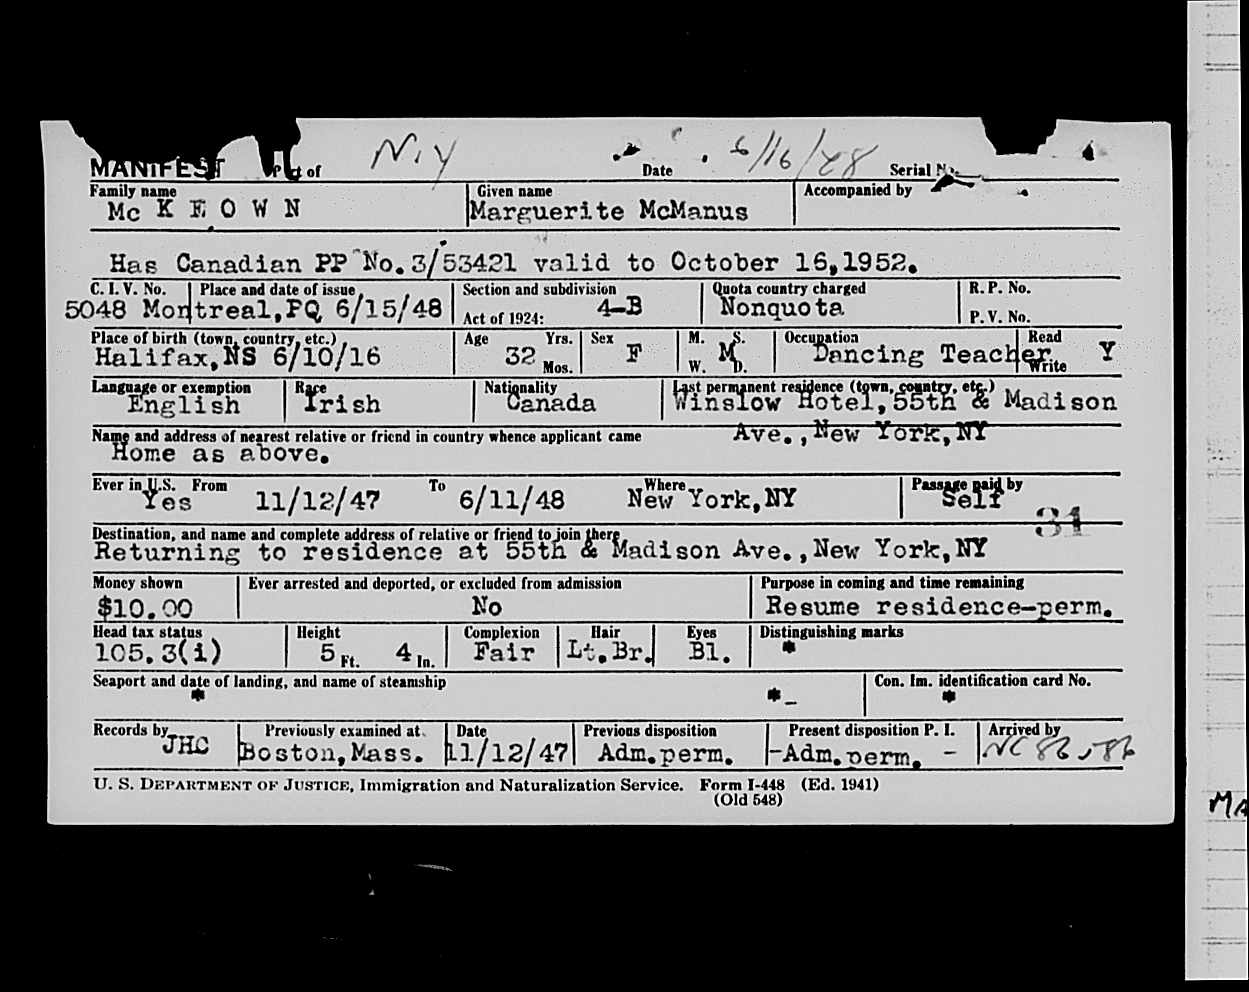 MANIFEST of N.Y Date 6/16/48 Serial No.
Family name Given name Accompanied by
Mc K E O W N Marguerite McManus
Has Canadian PP No.3/53421 valid to October 16,1952.
C. I. V. No. Place and date of issue Section and subdivision Quota country charged R. P. No.
5048 Montreal,PQ 6/15/48 Act of 1924: 4-B Nonquota P. V. No.
Place of birth (town, country, etc.) Age Yrs. Sex M. S. Occupation Read
Halifax,NS 6/10/16 32 Mos. F W. M D. Dancing Teacher Write Y
Language or exemption Race Nationality Last permanent residence (town, country, etc.)
English Irish Canada Winslow Hotel,55th & Madison
Name and address of nearest relative or friend in country whence applicant came Ave.,New York,NY
Home as above.
Ever in U.S. From To Where Passage paid by
Yes 11/12/47 6/11/48 New York,NY Self
31
Destination, and name and complete address of relative or friend to join there
Returning to residence at 55th & Madison Ave.,New York,NY
Money shown Ever arrested and deported, or excluded from admission Purpose in coming and time remaining
$10.00 No Resume residence-perm.
Head tax status Height Complexion Hair Eyes Distinguishing marks
105.3(i) 5 Ft. 4 In. Fair Lt.Br. Bl. *
Seaport and date of landing, and name of steamship Con. Im. identification card No.
* *- *
Records by Previously examined at Date Previous disposition Present disposition P. I. Arrived by
JHC Boston,Mass. 11/12/47 Adm.perm. -Adm.perm. -
U. S. DEPARTMENT OF JUSTICE, Immigration and Naturalization Service. Form I-448 (Ed. 1941)
(Old 548)